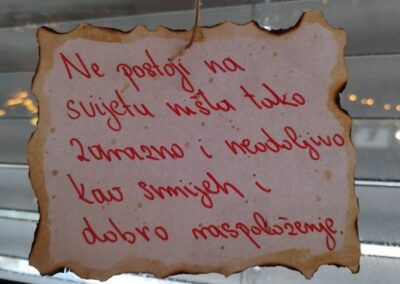 Ne postoji na
svijetu ništa tako
zarazno i neodoljivo
kao smijeh i
dobro raspoloženje.